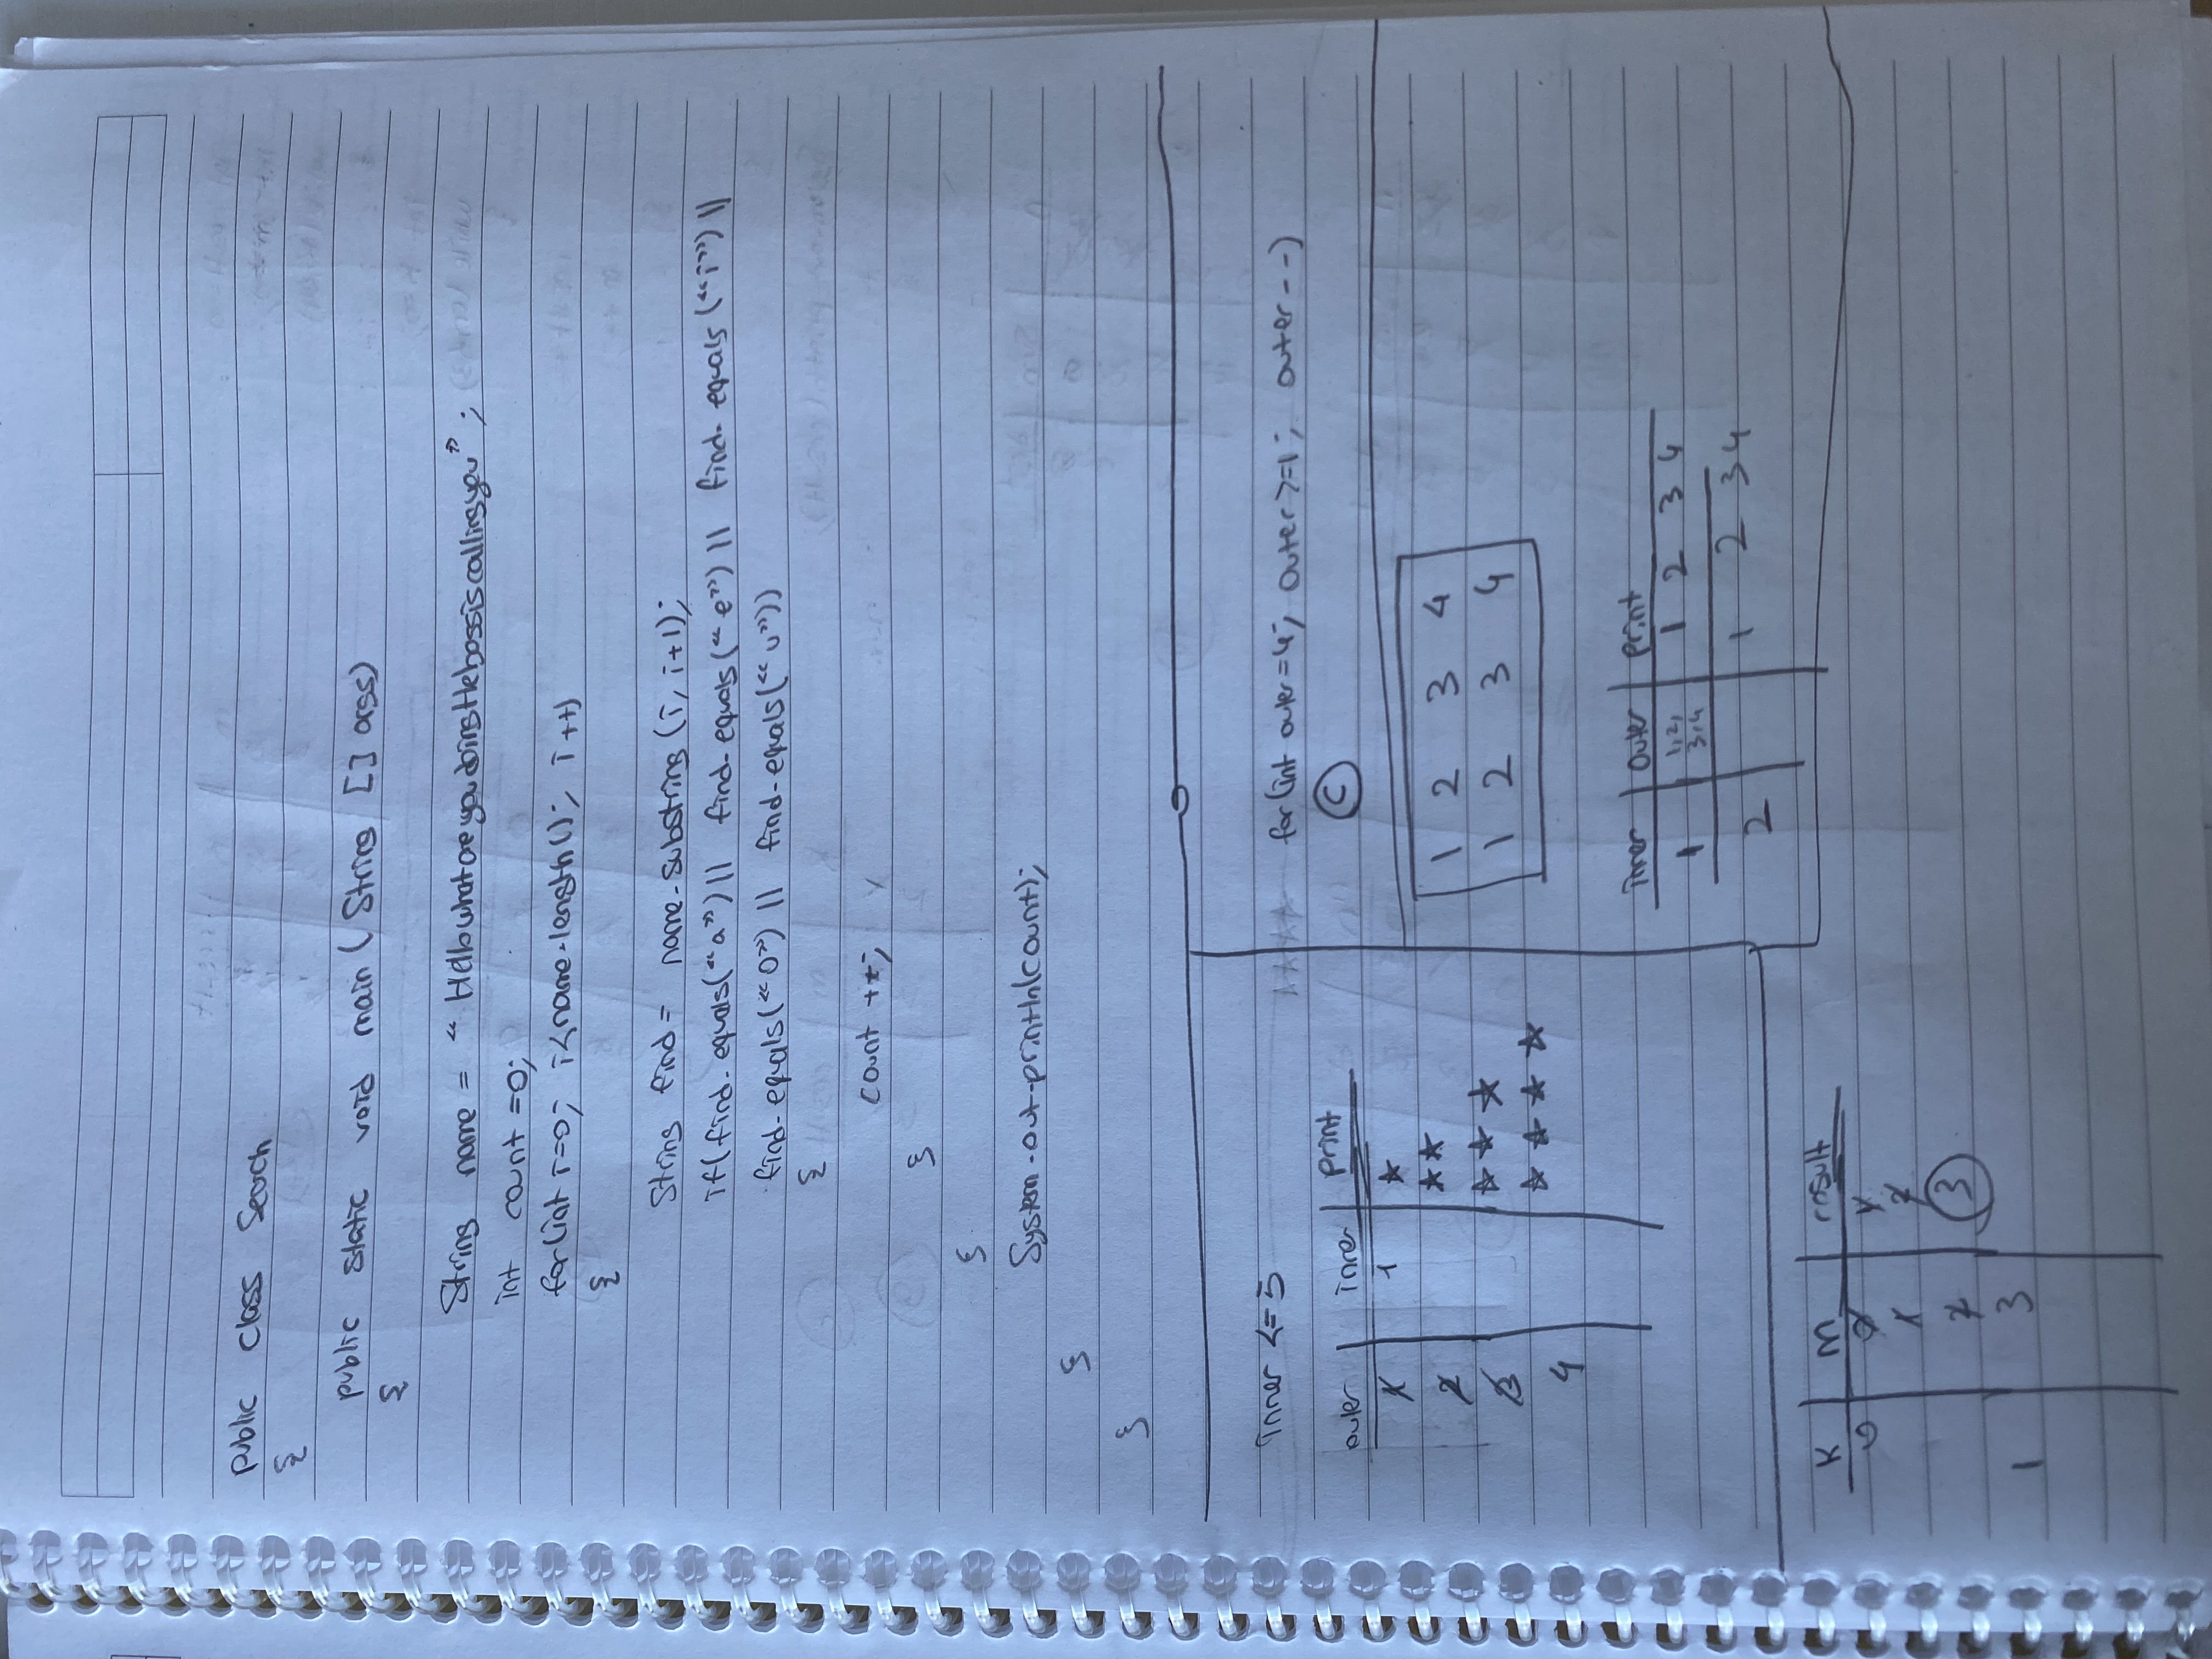 public class Search
{
public static void main (String [] args)
{
String name = "HellowhatareyoudoingHebossiscallingyou";
int count =0;
for(int i=0; i<name.length(); i++)
{
String find = name.substring(i, i+1);
if(find.equals("a") || find.equals("e") || find.equals("i") ||
find.equals("o") || find.equals("u"))
{
count ++;
}
}
System.out.println(count);
}
}
inner <= 5
outer inner print
1 1 ☆
2 ☆☆
3 ☆☆☆
4 ☆☆☆☆
for(int outer=4; outer>=1; outer--)
C
1 2 3 4
1 2 3 4
inner outer print
1 1,2, 3,4 1 2 3 4
2 1 2 3 4
K m result
0 0 1
1 2
2 3
1 3